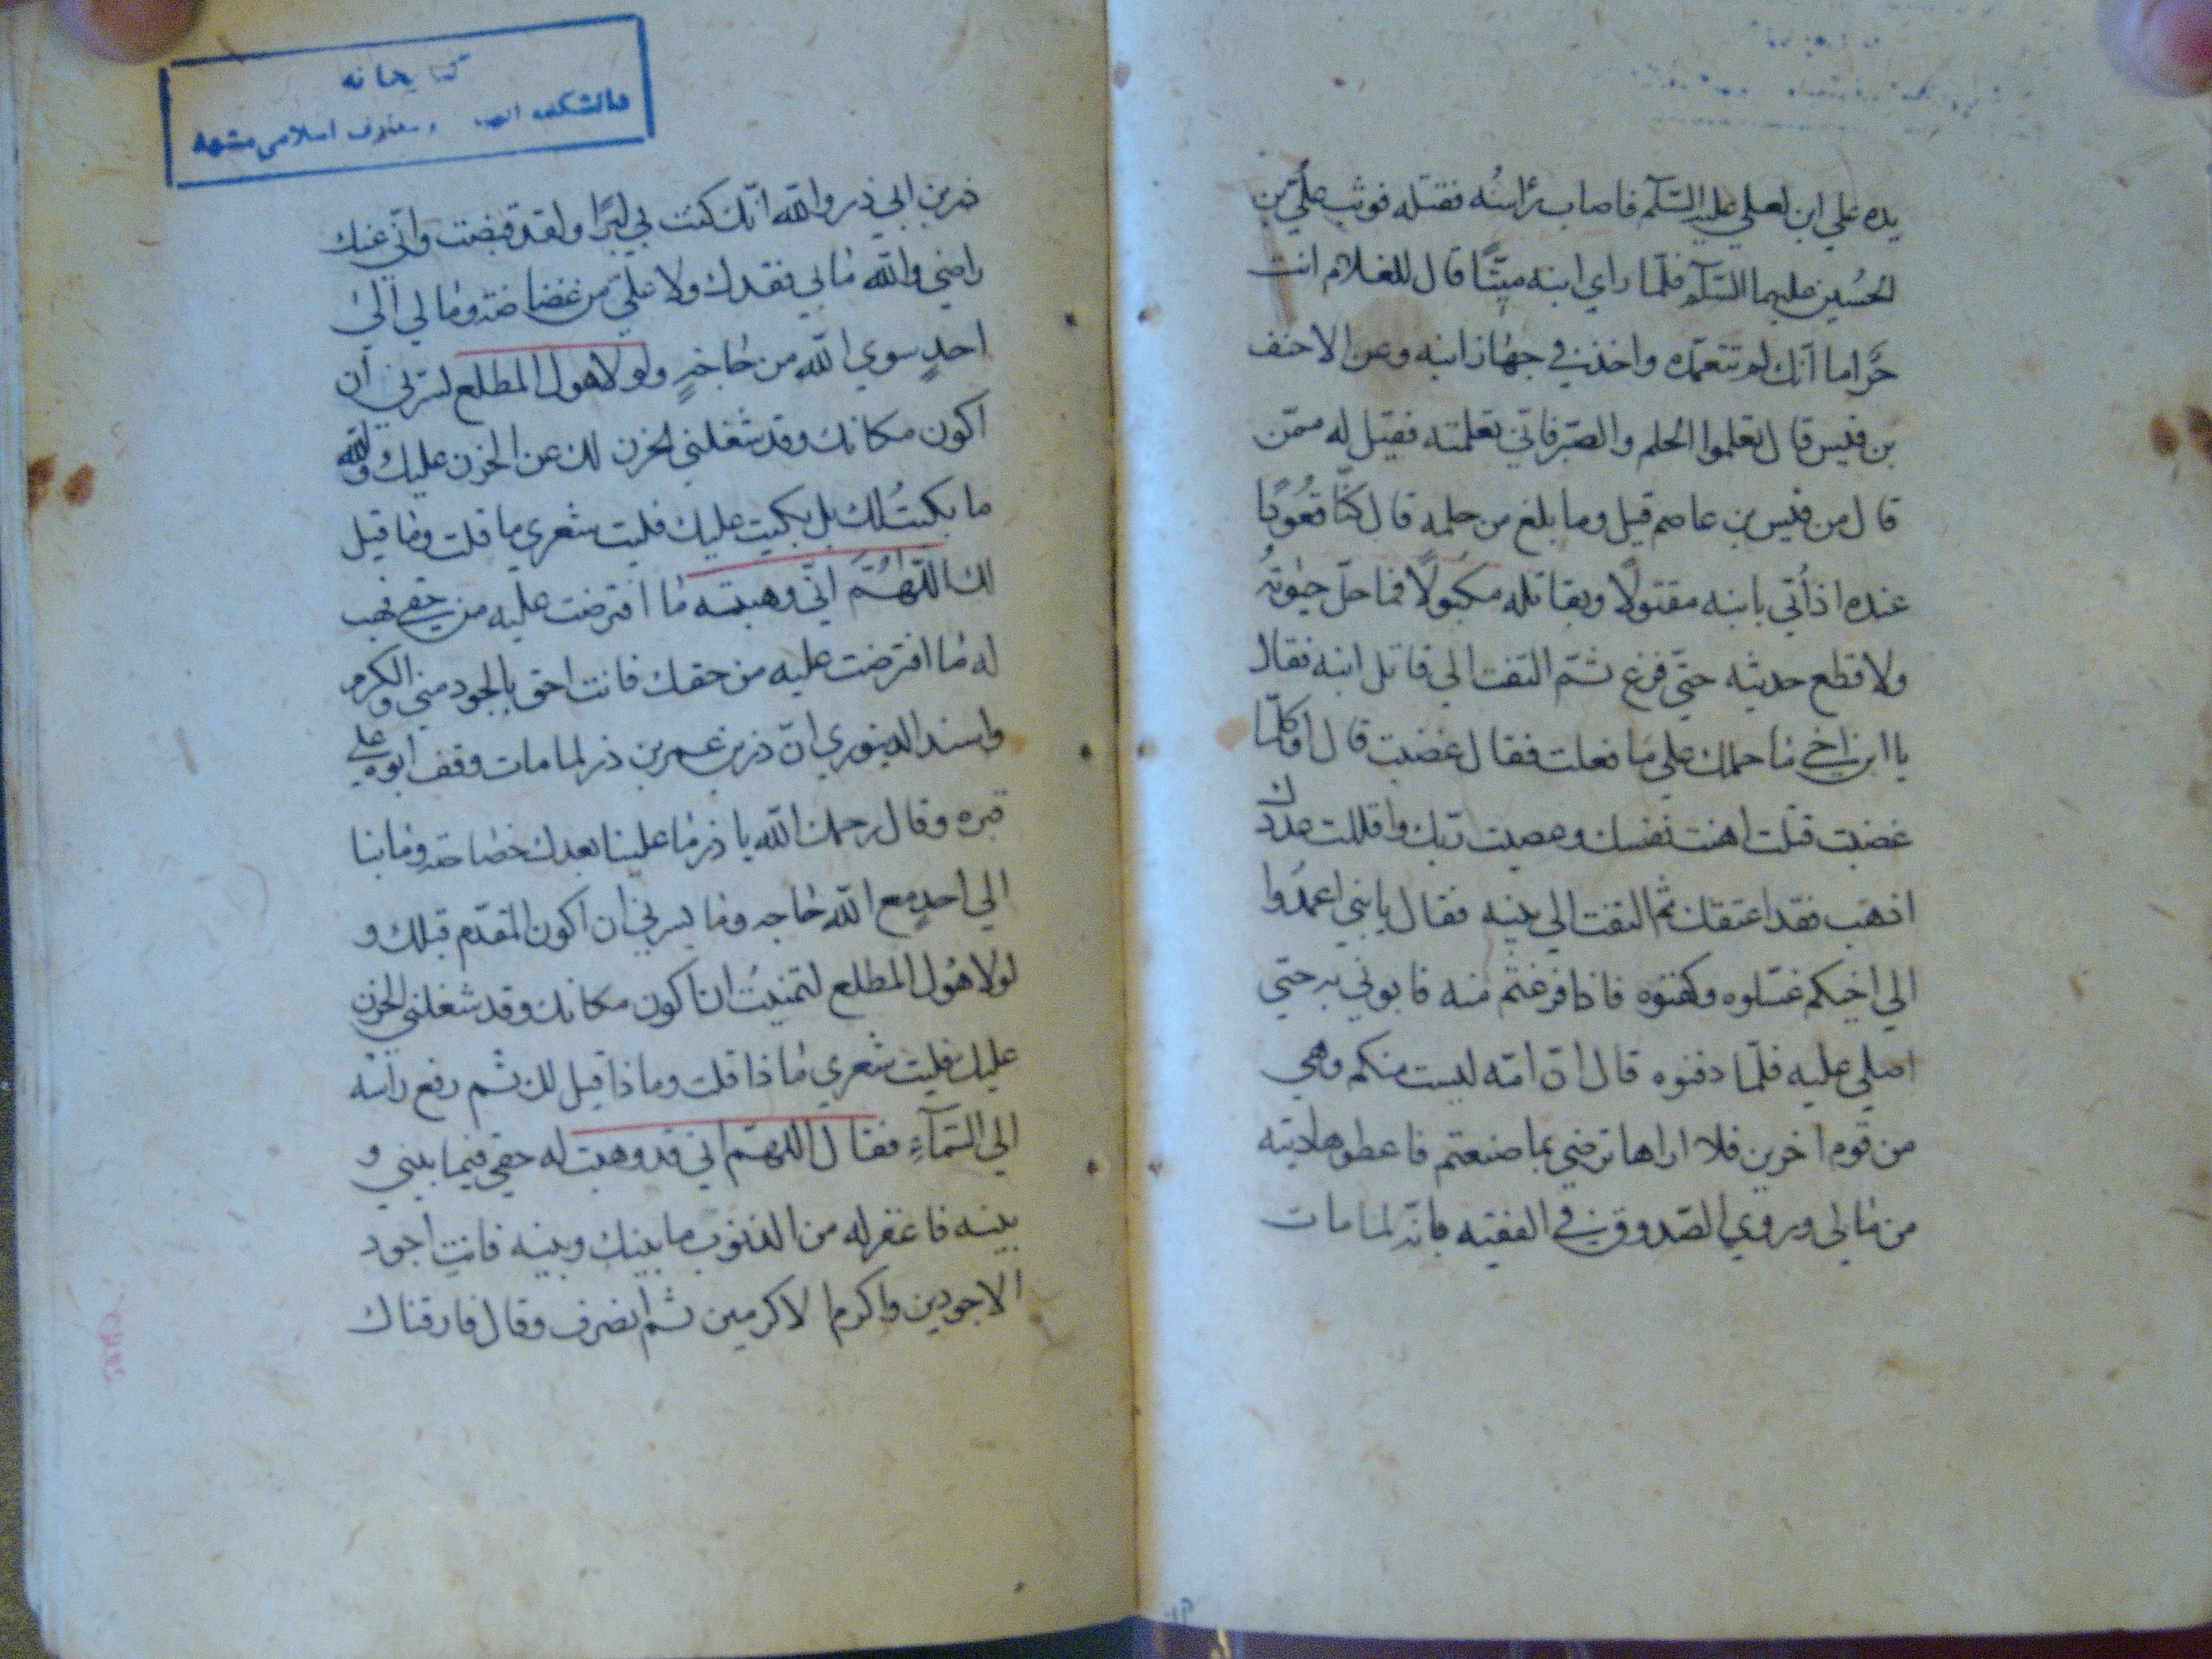 يده علي ابن لعلي عليه السّلام فاصاب رأسه فقتله فوثب علي بن
الحسين عليهما السّلام فلمّا راي ابنه ميّتًا قال للغلام انت
حرّ اما انّك لم تتعمّده واخذ في جهاز ابنه وعن الاحنف
بن قيس قال تعلموا الحلم والصّبر فاني تعلمته فقيل له ممّن
قال من قيس بن عاصم قيل وما بلغ من حلمه قال كنّا قعودًا
عنده اذ أتي بابنه مقتولًا وبقاتله مكبولًا فما حلّ حبوته
ولا قطع حديثه حتّي فرغ ثمّ التفت الي قاتل ابنه فقال
يا ابن اخي ما حملك علي ما فعلت فقال غضبت قال اوكلّما
غضبت قتلت اهنت نفسك وعصيت ربّك واقللت عددك
اذهب فقد اعتقتك ثم التفت الي بنيه فقال يا بني اعمدوا
الي اخيكم غسّلوه وكفنوه فاذا فرغتم منه فاتوني به حتي
اصلي عليه فلمّا دفنوه قال انّ امّه ليست منكم وهي
من قوم اخرين فلا اراها ترضي بما صنعتم فاعطوها ديته
من مالي وروي الصّدوق في الفقيه بانّه لما مات
كتابخانه
دانشكده الهيات و معارف اسلامي مشهد
ذر بن ابي ذر والله انّك كنت بي لبرًّا ولقد قبضت وانّي عنك
راضي والله ما بي فقدك ولا علي من غضاضة وما لي الي
احدٍ سوي الله من حاجةٍ ولولا هول المطلع لسرني أن
اكون مكانك وقد شغلني الحزن لك عن الحزن عليك والله
ما بكيتُ لك بل بكيت عليك فليت شعري ما قلت وما قيل
لك اللّهُمَّ انّي وهبته ما افترضت عليه من حقي فهب
له ما افترضت عليه من حقك فانت احق بالجود مني والكرم
واسند الدينوري انّ ذر بن عمر بن ذر لما مات وقف ابوه علي
قبره وقال رحمك الله يا ذر ما علينا بعدك خصاصة وما بنا
الي احدٍ مع الله حاجه وما يسرني ان اكون المقدّم قبلك و
لولا هول المطلع لتمنيتُ ان اكون مكانك وقد شغلني الحزن
عليك فليت شعري ماذا قلت وماذا قيل لك ثم رفع رأسه
الي السّمآءِ فقال اللّهمّ اني قد وهبت له حقي فيما بيني و
بينه فاغفر له من الذنوب ما بينك وبينه فانت اجود
الاجودين واكرم الاكرمين ثم انصرف وقال فارقناك